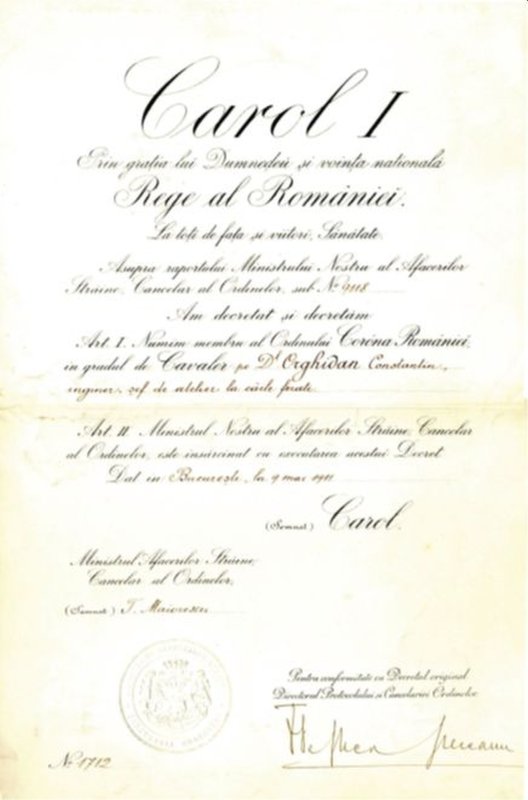 Carol I
Prin grația lui Dumnedeŭ și voința națională
Rege al României.
La toți de față și viitori, Sănătate.
Asupra raportului Ministrului Nostru al Afacerilor
Străine, Cancelar al Ordinelor, sub No 9118
Am decretat și decretăm
Art. I. Numim membru al Ordinului Coróna României,
in gradul de Cavaler pe Dl Orghidan Constantin,
inginer, șef de atelier la căile ferate.
Art. II. Ministrul Nostru al Afacerilor Străine, Cancelar
al Ordinelor, este însărcinat cu executarea acestui Decret
Dat in București, la 9 mai 1911
(Semnat) Carol.
Ministrul Afacerilor Străine,
Cancelar al Ordinelor,
(Semnat) T. Maiorescu
Pentru conformitate cu Decretul original
Directorul Protocolului si Cancelariei Ordinelor
No 1712